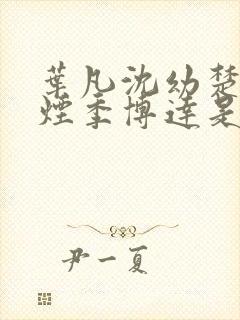 葉凡沈幼楚
煙季博達是
尹一夏